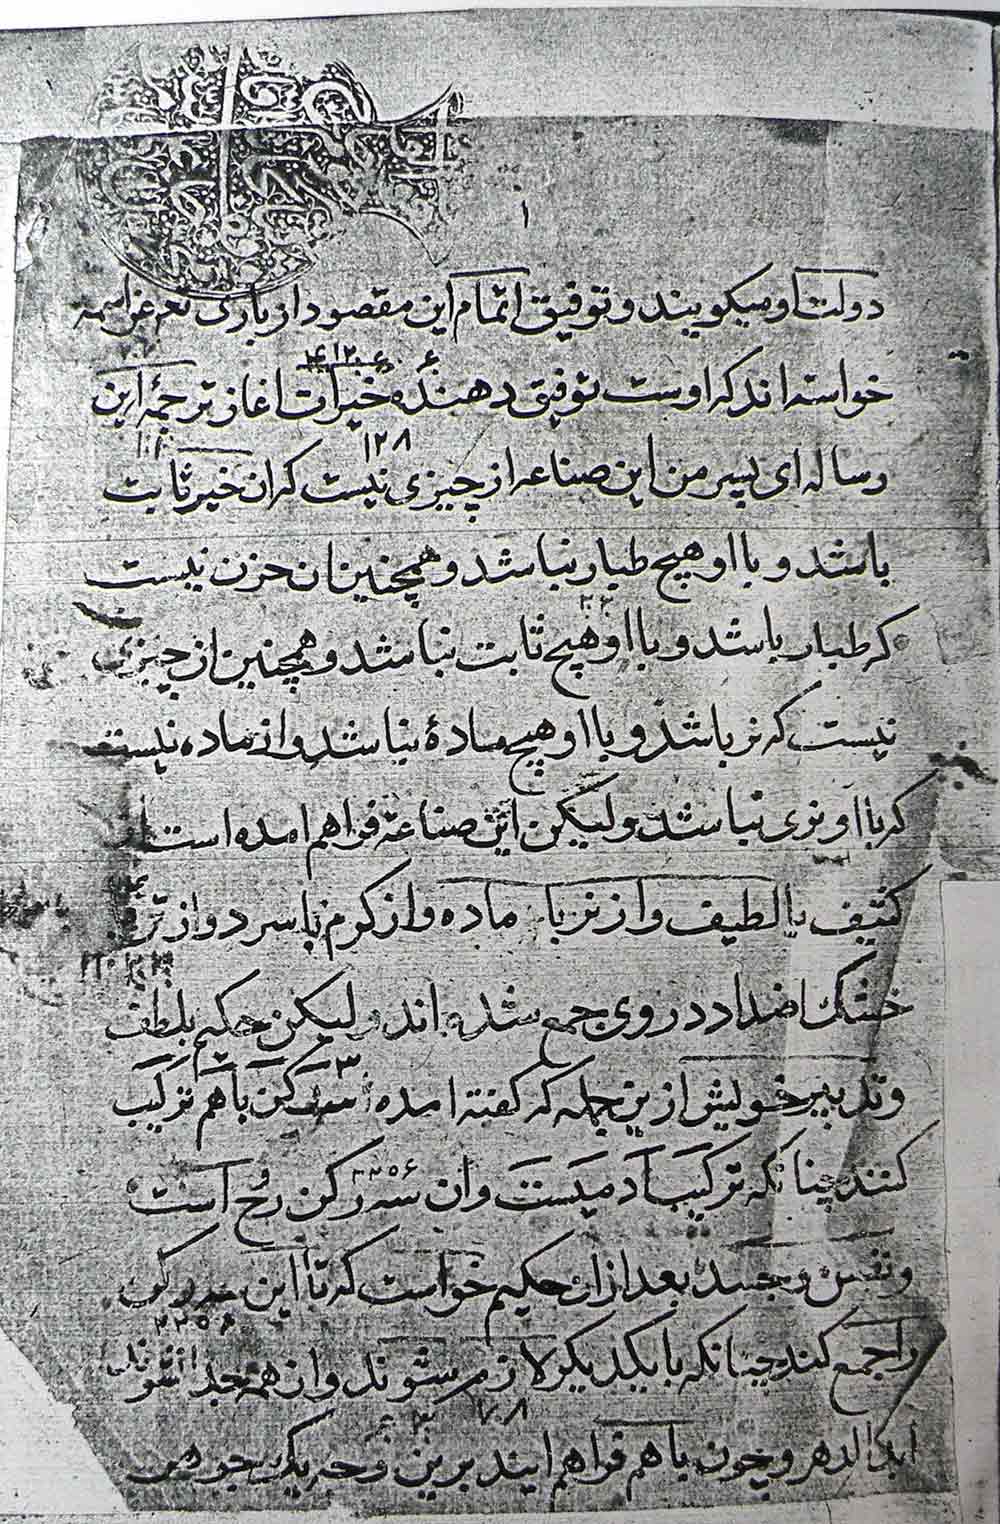 ۱
دولت او میکویند و توفیق اتمام این مقصود از باری تعم عز اسمه
خواسته اند که اوست توفیق دهنده خیرات اغاز ترجمه این
رساله ای پسر من این صناعه از چیزی نیست که ان خیر ثابت
۱۲۸
باشد و با او هیچ طیار نباشد و همچنین ان خزن نیست
که طیار باشد و با او هیچ ثابت نباشد و همچنین از چیزی
نیست که نر باشد و با او هیچ مادۀ نباشد و از ماده نیست
که با او نری نباشد ولیکن این صناعة فراهم امده است از
کثیف با لطیف و از نر با ماده و از کرم با سرد و از تر
خشک اضداد در وی جمع شده اند ولیکن حکیم بلطف
وتدبیر خویش ازین جمله که کفته امده ۳ رکن با هم ترکیب
کنند چنانکه ترکیب آدمیست وان سه رکن رُح است
ونفس وجسد بعد ازان حکیم خواست که تا این رکن
را جمع کند چنانکه با یکدیکر لازم شوند وان همه جدا نشوند
ابد الدهر و چون با هم فراهم ایند برین وجه یک جوهر